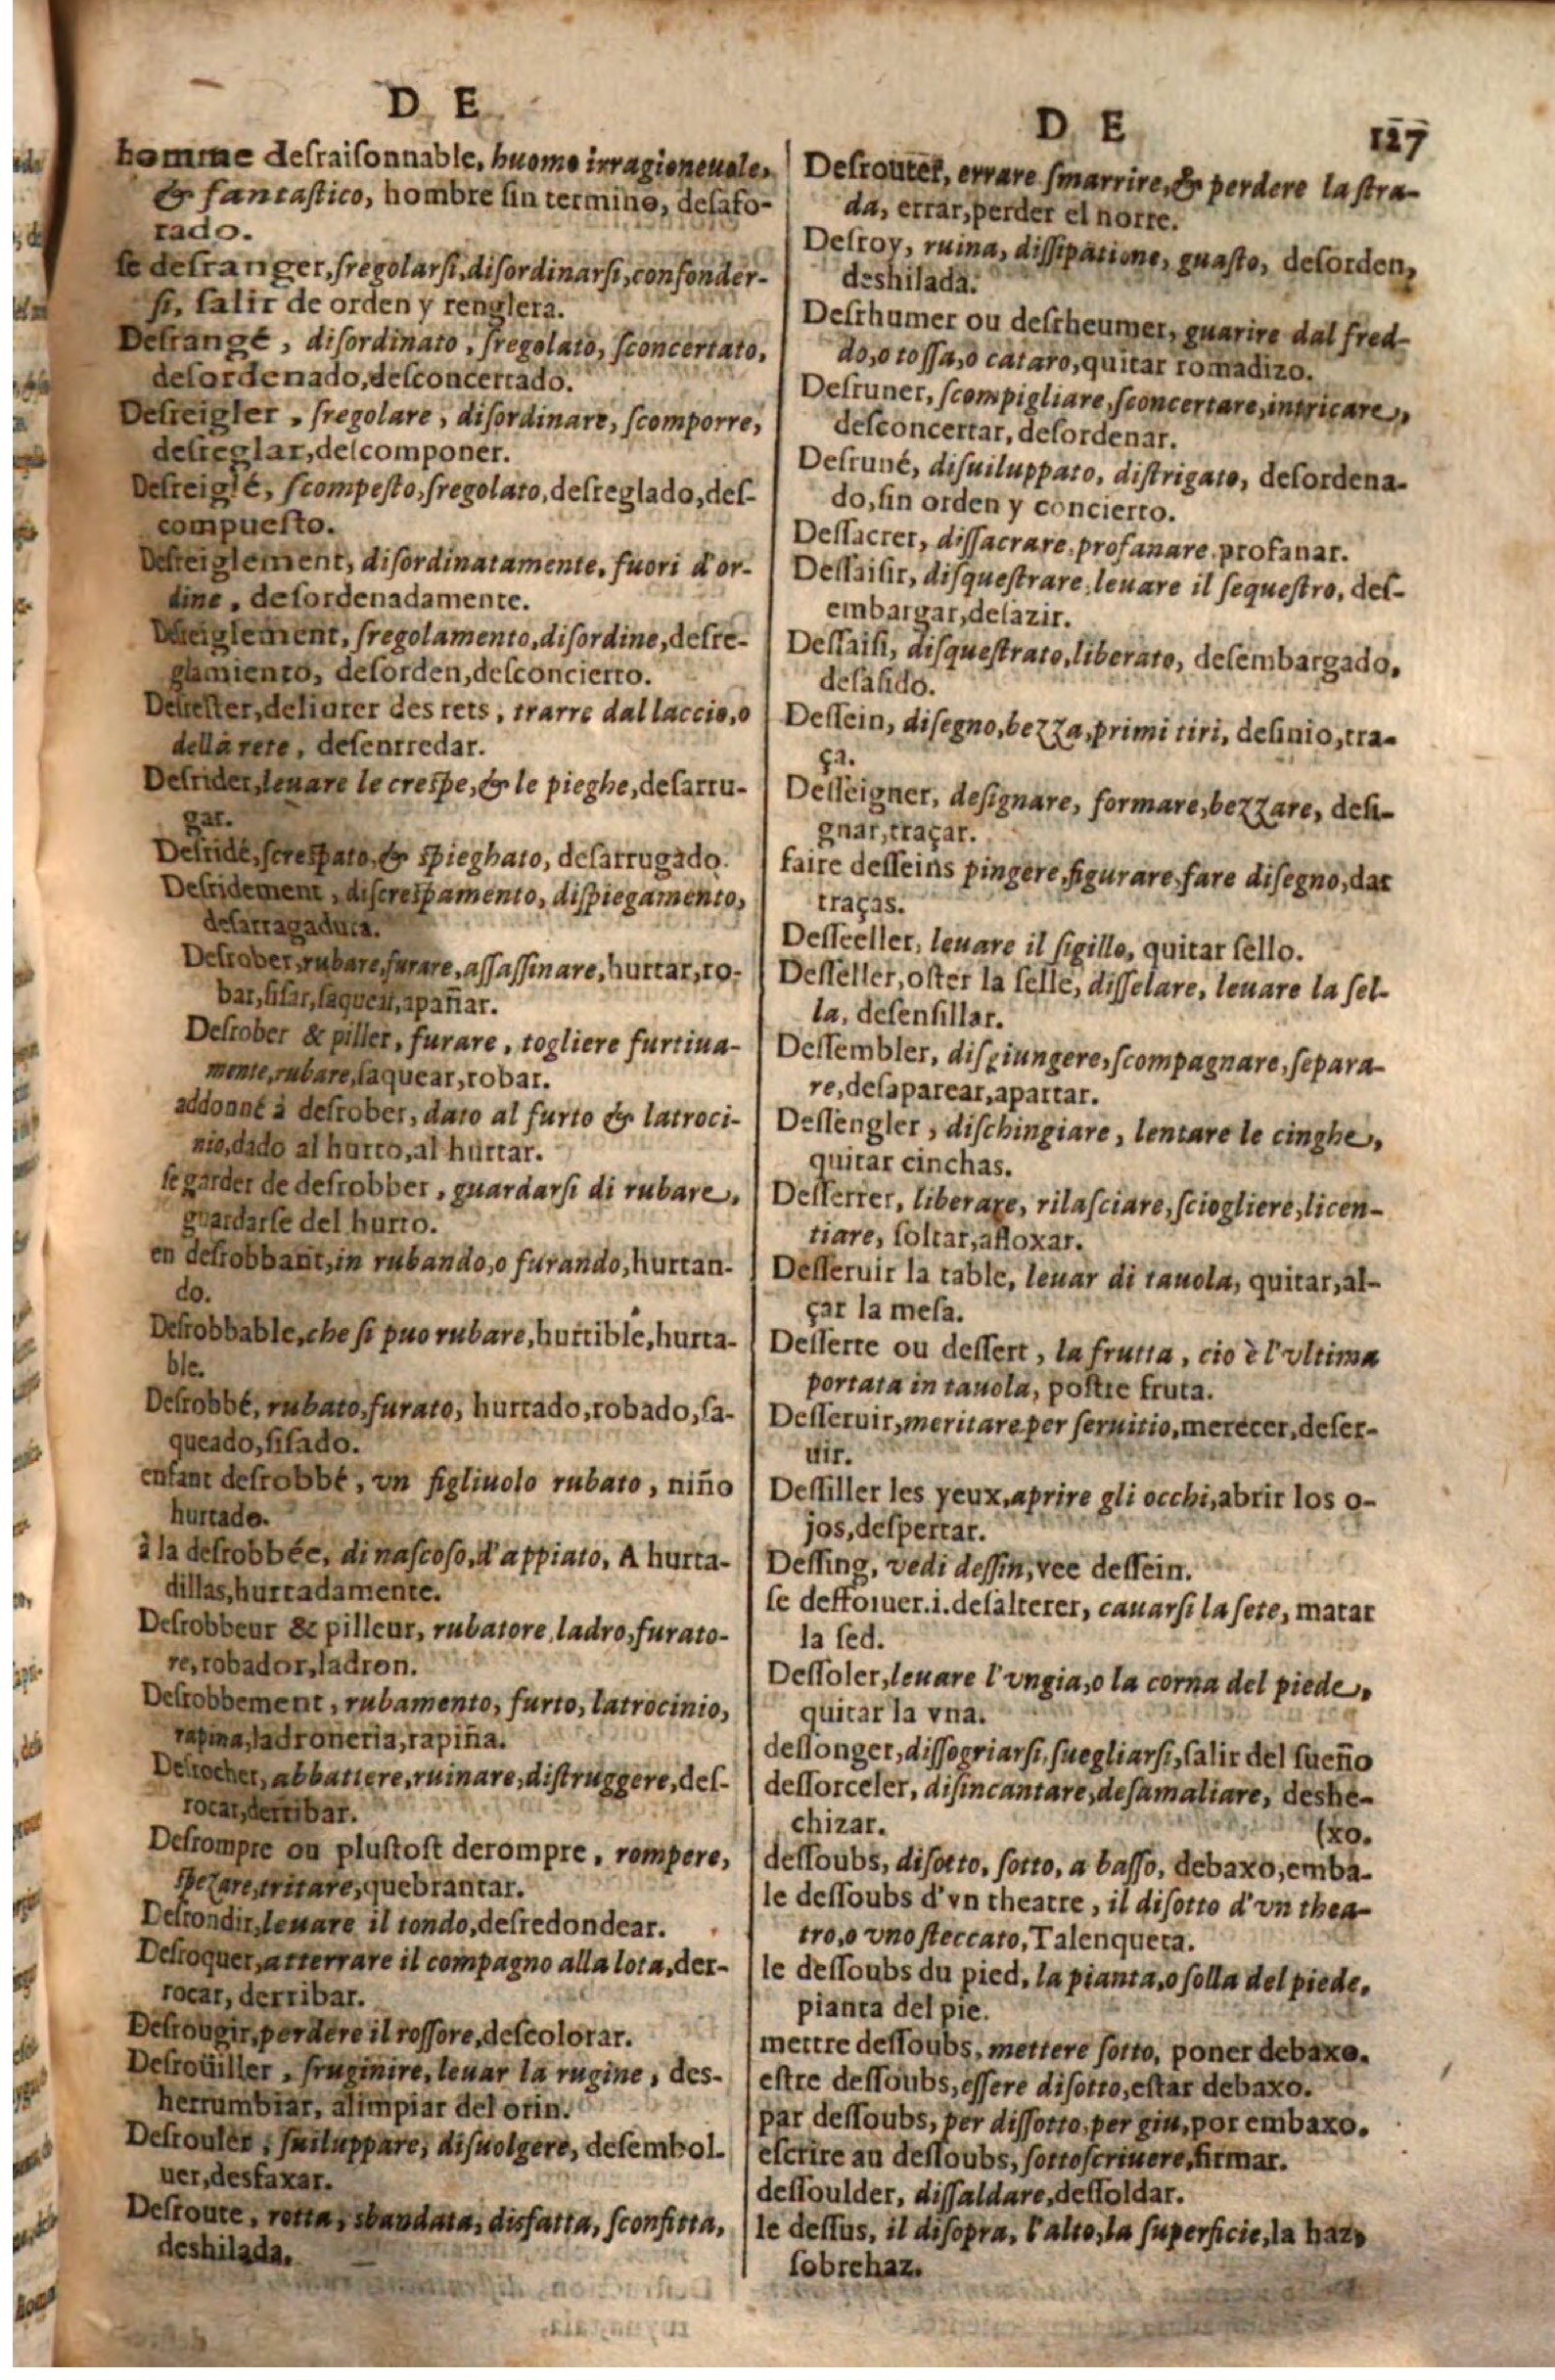 D E
homme desraisonnable, huomo irragioneuole,
& fantastico, hombre sin termino, desafo-
rado.
se desranger, sregolarsi, disordinarsi, confonder-
si, salir de orden y renglera.
Desrangé, disordinato, sregolato, sconcertato,
desordenado, desconcertado.
Desreigler, sregolare, disordinare, scomporre,
desreglar, descomponer.
Desreiglé, scompesto, sregolato, desreglado, des-
compuesto.
Desreiglement, disordinatamente, fuori d'or-
dine, desordenadamente.
Desreiglement, sregolamento, disordine, desre-
glamiento, desorden, desconcierto.
Desrester, deliurer des rets, trarre dal laccio, o
della rete, desenrredar.
Desrider, leuare le crespe, & le pieghe, desarru-
gar.
Desridé, screspato, & spieghato, desarrugado.
Desridement, discrespamento, dispiegamento,
desarragadura.
Desrober, rubare, furare, assassinare, hurtar, ro-
bar, sisar, saquear, apañar.
Desrober & piller, furare, togliere furtiua-
mente, rubare, saquear, robar.
addonné à desrober, dato al furto & latroci-
nio, dado al hurto, al hurtar.
se garder de desrobber, guardarsi di rubare,
guardarse del hurto.
en desrobbant, in rubando, o furando, hurtan-
do.
Desrobbable, che si puo rubare, hurtible, hurta-
ble.
Desrobbé, rubato, furato, hurtado, robado, sa-
queado, sisado.
enfant desrobbé, vn figliuolo rubato, niño
hurtado.
à la desrobbée, di nascoso, d'appiato, A hurta-
dillas, hurtadamente.
Desrobbeur & pilleur, rubatore, ladro, furato-
re, robador, ladron.
Desrobbement, rubamento, furto, latrocinio,
rapina, ladroneria, rapiña.
Desrocher, abbattere, ruinare, distruggere, des-
rocar, derribar.
Desrompre ou plustost derompre, rompere,
spezare, tritare, quebrantar.
Desrondir, leuare il tondo, desredondear.
Desroquer, atterrare il compagno alla lota, der-
rocar, derribar.
Desrougir, perdere il rossore, descolorar.
Desroüiller, sruginire, leuar la rugine, des-
herrumbiar, alimpiar del orin.
Desrouler, suiluppare, disuolgere, desembol-
uer, desfaxar.
Desroute, rotta, sbandata, disfatta, sconfitta,
deshilada.
D E 127
Desrouter, errare smarrire, & perdere la stra-
da, errar, perder el norte.
Desroy, ruina, dissipatione, guasto, desorden,
deshilada.
Desrhumer ou desrheumer, guarire dal fred-
do, o tossa, o cataro, quitar romadizo.
Desruner, scompigliare, sconcertare, intricare,
desconcertar, desordenar.
Desruné, disuiluppato, distrigato, desordena-
do, sin orden y concierto.
Dessacrer, dissacrare, profanare, profanar.
Dessaisir, disquestrare, leuare il sequestro, des-
embargar, desazir.
Dessaisi, disquestrato, liberato, desembargado,
desasido.
Dessein, disegno, bezza, primi tiri, desinio, tra-
ça.
Desseigner, designare, formare, bezzare, desi-
gnar, traçar.
faire desseins pingere, figurare, fare disegno, dar
traças.
Desseeller, leuare il sigillo, quitar sello.
Desseller, oster la selle, disselare, leuare la sel-
la, desensillar.
Dessembler, disgiungere, scompagnare, separa-
re, desaparear, apartar.
Dessengler, dischingiare, lentare le cinghe,
quitar cinchas.
Desserrer, liberare, rilasciare, sciogliere, licen-
tiare, soltar, afloxar.
Desseruir la table, leuar di tauola, quitar, al-
çar la mesa.
Desserte ou dessert, la frutta, cio è l'vltima
portata in tauola, postre fruta.
Desseruir, meritare per seruitio, merecer, deser-
uir.
Dessiller les yeux, aprire gli occhi, abrir los o-
jos, despertar.
Dessing, vedi dessin, vee dessein.
se dessoiuer.i.desalterer, cauarsi la sete, matar
la sed.
Dessoler, leuare l'vngia, o la corna del piede,
quitar la vna.
dessonger, dissogriarsi, suegliarsi, salir del sueño
dessorceler, disincantare, desamaliare, deshe-
chizar. (xo.
dessoubs, disotto, sotto, a basso, debaxo, emba-
le dessoubs d'vn theatre, il disotto d'vn thea-
tro, o vno steccato, Talenquera.
le dessoubs du pied, la pianta, o solla del piede,
pianta del pie.
mettre dessoubs, mettere sotto, poner debaxo.
estre dessoubs, essere disotto, estar debaxo.
par dessoubs, per dissotto, per giu, por embaxo.
escrire au dessoubs, sottoscriuere, firmar.
dessoulder, dissaldare, dessoldar.
le dessus, il disopra, l'alto, la superficie, la haz,
sobrehaz.